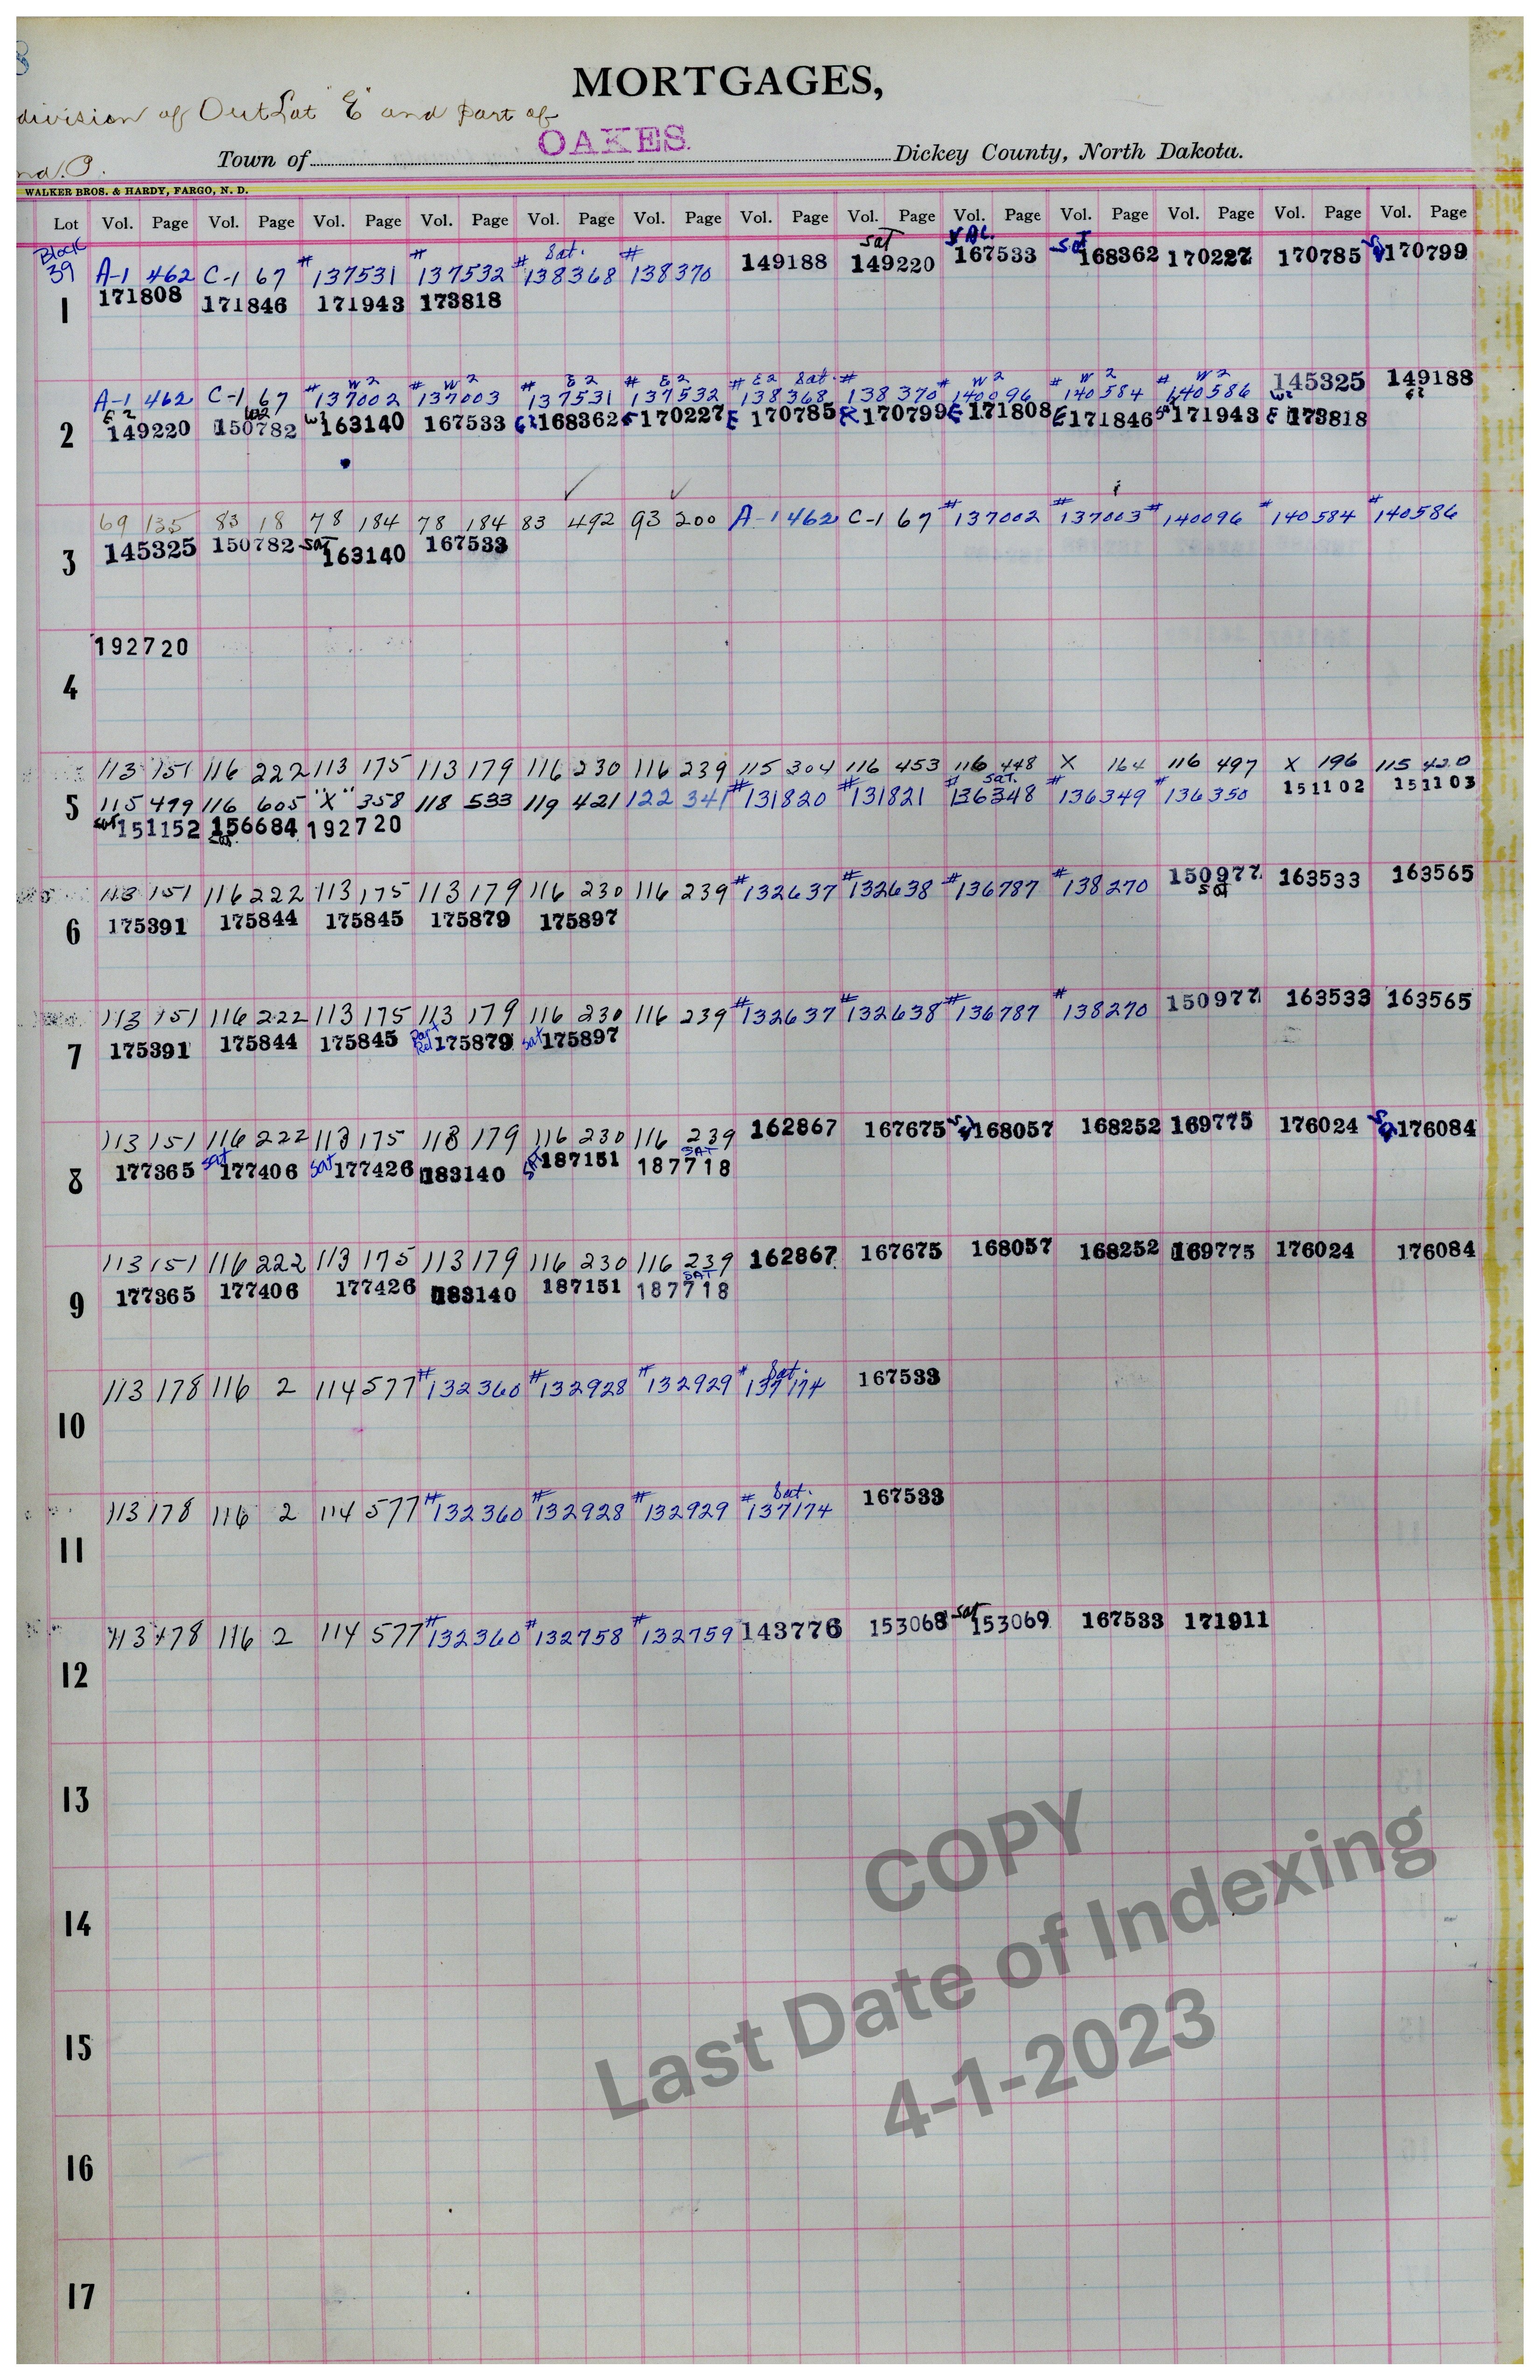 MORTGAGES,
division of OutLot "E" and part of
OAKES.
Town of Dickey County, North Dakota.
WALKER BROS. & HARDY, FARGO, N. D.
Lot Vol. Page Vol. Page Vol. Page Vol. Page Vol. Page Vol. Page Vol. Page Vol. Page Vol. Page Vol. Page Vol. Page Vol. Page Vol. Page
Block 39
Sat. sat sat
A-1 462 C-1 67 #137531 #137532 #138368 #138370 149188 149220 167533 168362 170227 170785 170799
1 171808 171846 171943 173818
W2 W2 E2 E2 E2 Sat. W2 W2 W2
A-1 462 C-1 67 #137002 #137003 #137531 #137532 #138368 #138370 #140096 #140584 #140586 145325 149188
E2 W2 W2 E2
2 149220 150782 163140 167533 168362 170227 E 170785 170799 E 171808 E 171846 171943 E 173818
69 135 83 18 78 184 78 184 83 492 93 200 A-1 462 C-1 67 #137002 #137003 #140096 #140584 #140586
3 145325 150782 sat 163140 167533
192720
4
113 151 116 222 113 175 113 179 116 230 116 239 115 304 116 453 116 448 X 164 116 497 X 196 115 420
5 115 479 116 605 "X" 358 118 533 119 421 122 341 #131820 #131821 #136348 sat. #136349 #136350 151102 151103
sat 151152 156684 192720
113 151 116 222 113 175 113 179 116 230 116 239 #132637 #132638 #136787 #138270 150977 sat 163533 163565
6 175391 175844 175845 175879 175897
113 151 116 222 113 175 113 179 116 230 116 239 #132637 #132638 #136787 #138270 150977 163533 163565
7 175391 175844 175845 Part Rel 175879 sat 175897
113 151 116 222 113 175 113 179 116 230 116 239 162867 167675 168057 168252 169775 176024 176084
8 177365 sat 177406 sat 177426 183140 SAT 187151 SAT 187718
113 151 116 222 113 175 113 179 116 230 116 239 162867 167675 168057 168252 169775 176024 176084
9 177365 177406 177426 183140 187151 SAT 187718
113 178 116 2 114 577 #132360 #132928 #132929 #137174 Sat. 167533
10
113 178 116 2 114 577 #132360 #132928 #132929 #137174 Sat. 167533
11
113 178 116 2 114 577 #132360 #132758 #132759 143776 153068 sat 153069 167533 171911
12
13
14
15
16
17
COPY
Last Date of Indexing
4-1-2023